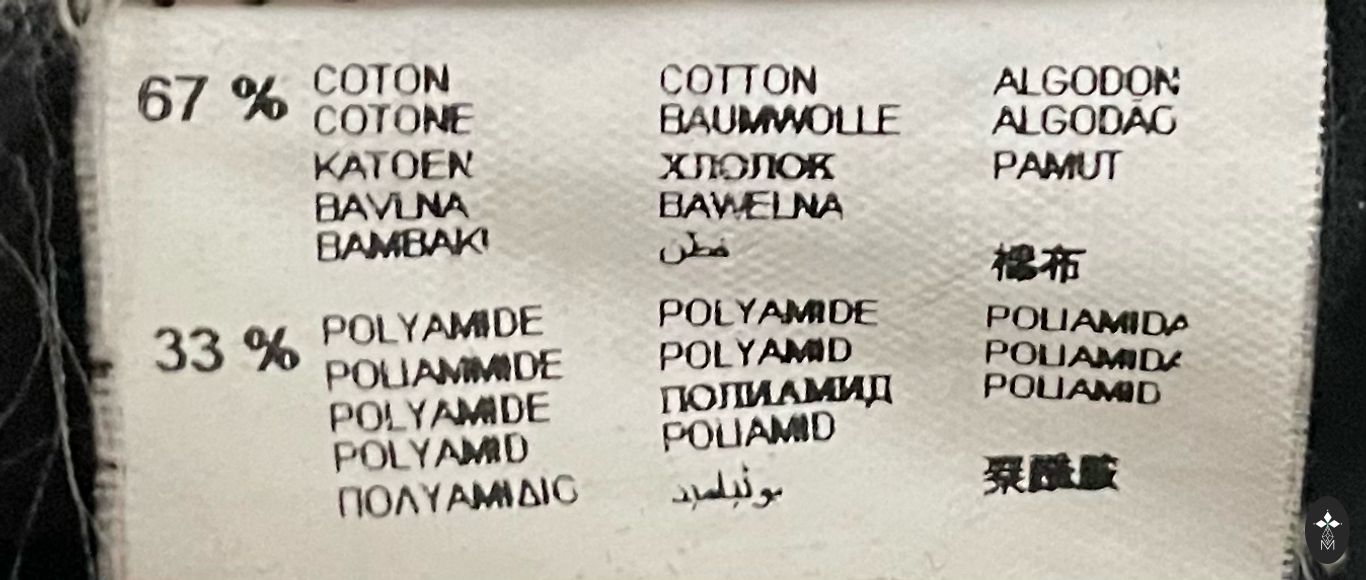 67 % COTON COTTON ALGODON
COTONE BAUMWOLLE ALGODÃO
KATOEN ХЛОПОК PAMUT
BAVLNA BAWEŁNA
BAMBAKI قطن 棉布
33 % POLYAMIDE POLYAMIDE POLIAMIDA
POLIAMMIDE POLYAMID POLIAMIDA
POLYAMIDE ПОЛИАМИД POLIAMID
POLYAMID POLIAMID
ΠΟΛΥΑΜΙΔΙΟ